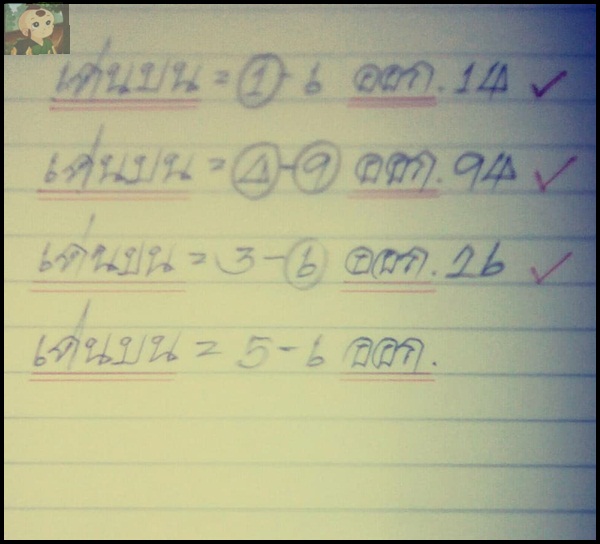 เด่นบน = 1-6 ออก. 14 ✓
เด่นบน = 4-9 ออก. 94 ✓
เด่นบน = 3-6 ออก. 26 ✓
เด่นบน = 5-6 ออก.